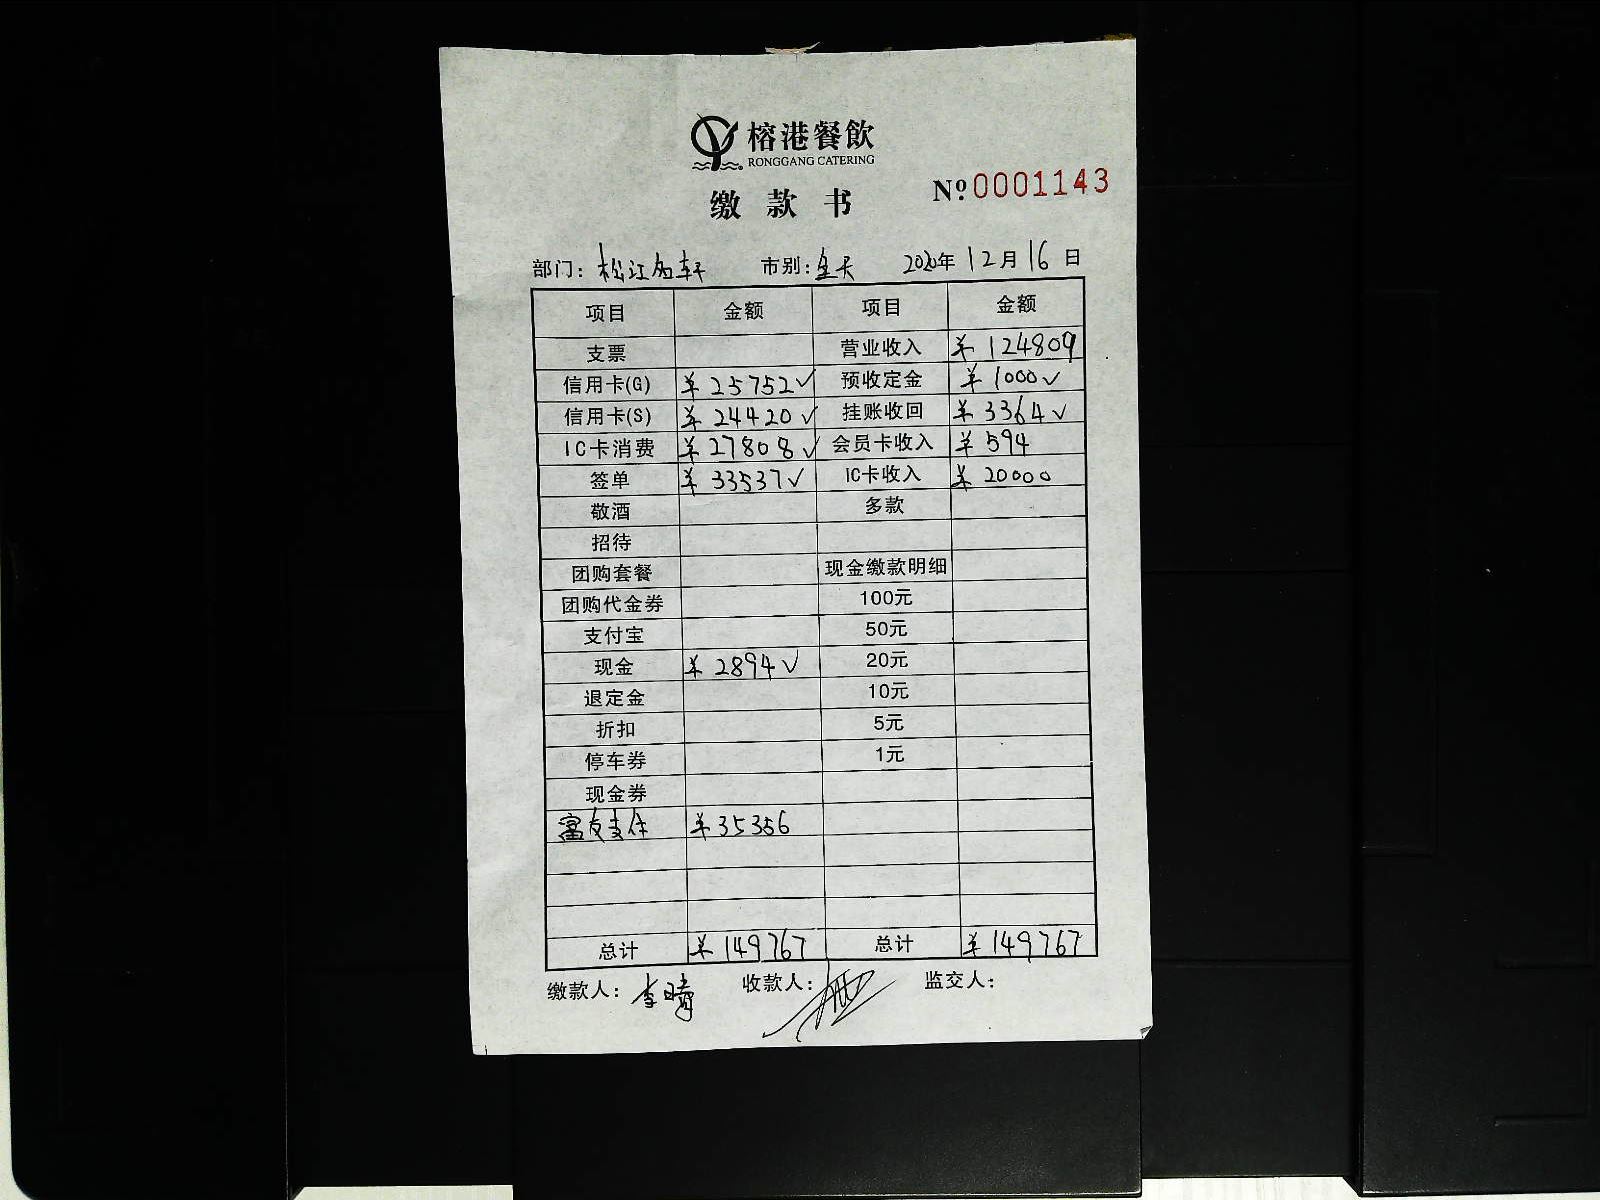 榕港餐飲
RONGGANG CATERING
缴款书
Nº 0001143
部门: 松江名轩 市别: 全天 2020年12月16日
项目 金额 项目 金额
支票 营业收入 ¥124809
信用卡(G) ¥25752✓ 预收定金 ¥1000✓
信用卡(S) ¥24420✓ 挂账收回 ¥3364✓
IC卡消费 ¥27808✓ 会员卡收入 ¥594
签单 ¥33537✓ IC卡收入 ¥20000
敬酒 多款
招待
团购套餐 现金缴款明细
团购代金券 100元
支付宝 50元
现金 ¥2894✓ 20元
退定金 10元
折扣 5元
停车券 1元
现金券
富友支付 ¥35356
总计 ¥149767 总计 ¥149767
缴款人: 李晴 收款人: 监交人: